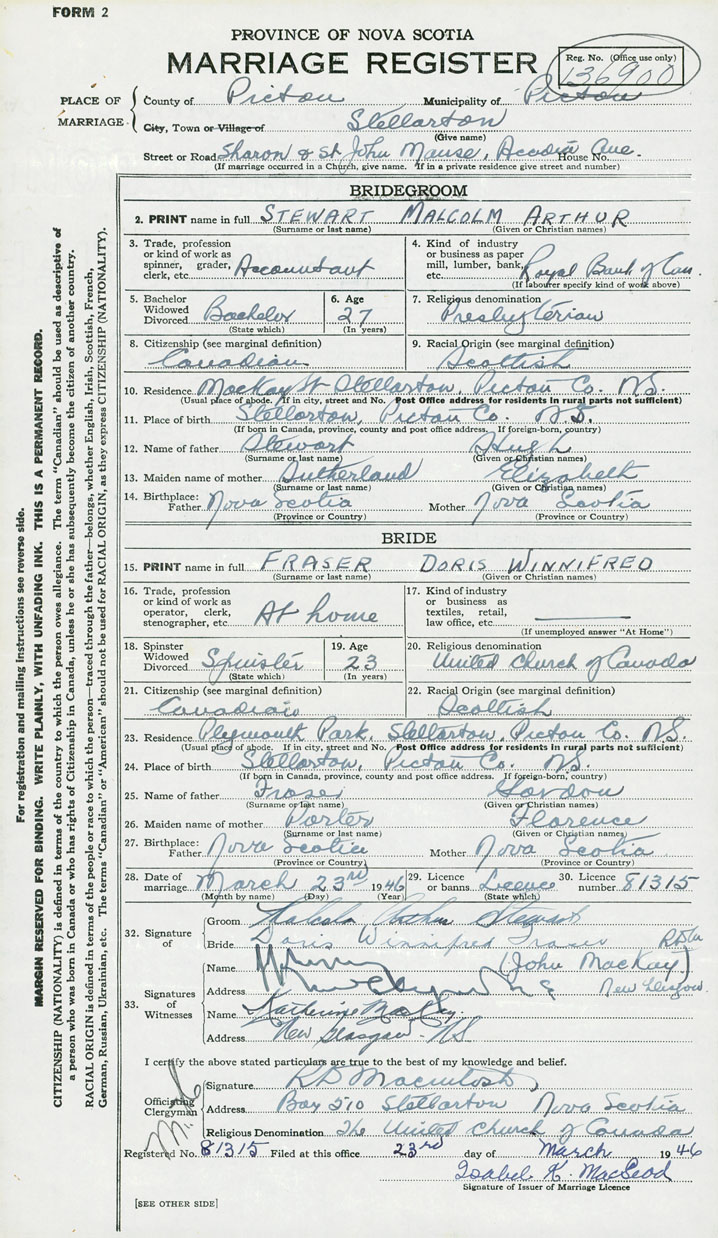 FORM 2
PROVINCE OF NOVA SCOTIA
MARRIAGE REGISTER
Reg. No. (Office use only)
136900
PLACE OF MARRIAGE
County of Pictou Municipality of Pictou
City, Town or Village of Stellarton
(Give name)
Street or Road Sharon & St John Manse, Acadia Ave. House No.
(If marriage occurred in a Church, give name. If in a private residence give street and number)
BRIDEGROOM
2. PRINT name in full STEWART MALCOLM ARTHUR
(Surname or last name) (Given or Christian names)
3. Trade, profession or kind of work as spinner, grader, clerk, etc. Accountant
4. Kind of industry or business as paper mill, lumber, bank, etc. Royal Bank of Can.
(If labourer specify kind of work above)
5. Bachelor Widowed Divorced Bachelor
(State which)
6. Age 27
(In years)
7. Religious denomination Presbyterian
8. Citizenship (see marginal definition) Canadian
9. Racial Origin (see marginal definition) Scottish
10. Residence MacKay St Stellarton, Pictou Co. N.S.
(Usual place of abode. If in city, street and No. Post Office address for residents in rural parts not sufficient)
11. Place of birth Stellarton, Pictou Co. N.S.
(If born in Canada, province, county and post office address. If foreign-born, country)
12. Name of father Stewart Hugh
(Surname or last name) (Given or Christian names)
13. Maiden name of mother Sutherland Elizabeth
(Surname or last name) (Given or Christian names)
14. Birthplace: Father Nova Scotia Mother Nova Scotia
(Province or Country) (Province or Country)
BRIDE
15. PRINT name in full FRASER DORIS WINNIFRED
(Surname or last name) (Given or Christian names)
16. Trade, profession or kind of work as operator, clerk, stenographer, etc. At home
17. Kind of industry or business as textiles, retail, law office, etc.
(If unemployed answer "At Home")
18. Spinster Widowed Divorced Spinster
(State which)
19. Age 23
(In years)
20. Religious denomination United Church of Canada
21. Citizenship (see marginal definition) Canadian
22. Racial Origin (see marginal definition) Scottish
23. Residence Plymouth Park, Stellarton, Pictou Co. N.S.
(Usual place of abode. If in city, street and No. Post Office address for residents in rural parts not sufficient)
24. Place of birth Stellarton, Pictou Co. N.S.
(If born in Canada, province, county and post office address. If foreign-born, country)
25. Name of father Fraser Gordon
(Surname or last name) (Given or Christian names)
26. Maiden name of mother Porter Florence
(Surname or last name) (Given or Christian names)
27. Birthplace: Father Nova Scotia Mother Nova Scotia
(Province or Country) (Province or Country)
28. Date of marriage March 23rd 1946
(Month by name) (Day) (Year)
29. Licence or banns Licence
(State which)
30. Licence number 81315
32. Signature of
Groom Malcolm Arthur Stewart
Bride Doris Winnifred Fraser
33. Signatures of Witnesses
Name (John MacKay)
Address New Glasgow
Name Katherine MacKay
Address New Glasgow NS
I certify the above stated particulars are true to the best of my knowledge and belief.
Officiating Clergyman
Signature R D Macintosh
Address Box 510 Stellarton Nova Scotia
Religious Denomination The United Church of Canada
Registered No. 81315 Filed at this office 23rd day of March 1946
Isabel K. MacLeod
Signature of Issuer of Marriage Licence
[SEE OTHER SIDE]
For registration and mailing instructions see reverse side.
MARGIN RESERVED FOR BINDING. WRITE PLAINLY, WITH UNFADING INK. THIS IS A PERMANENT RECORD.
CITIZENSHIP (NATIONALITY) is defined in terms of the country to which the person owes allegiance. The term "Canadian" should be used as descriptive of
a person who was born in Canada or who has rights of Citizenship in Canada, unless he or she has subsequently become the citizen of another country.
RACIAL ORIGIN is defined in terms of the people or race to which the person—traced through the father—belongs, whether English, Irish, Scottish, French,
German, Russian, Ukrainian, etc. The terms "Canadian" or "American" should not be used for RACIAL ORIGIN, as they express CITIZENSHIP (NATIONALITY).